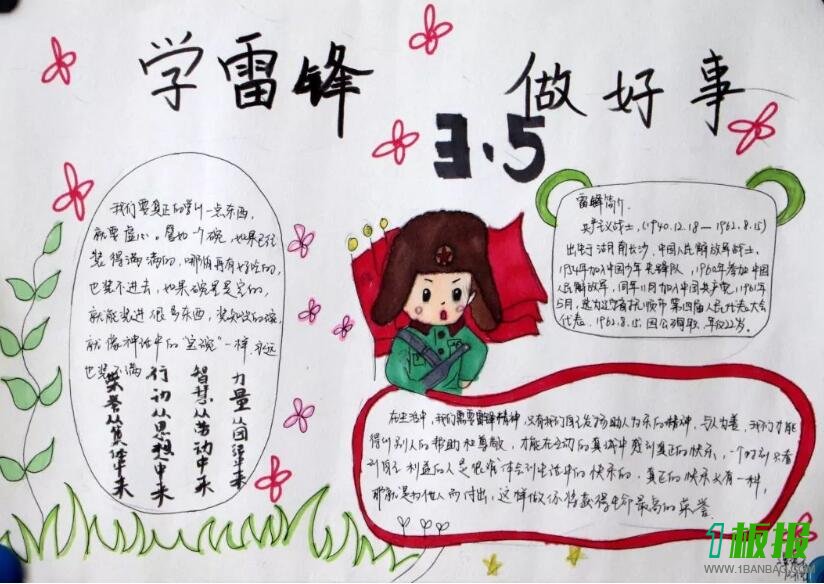 学雷锋 做好事
3.5
我们要真正的学一点东西,
就要虚心。譬如一个碗,如果已经
装得满满的,哪怕再有好吃的,
也装不进去,如果碗是空的,
就能装进很多东西,装知识的碗,
就像神话中的“宝碗”一样,永远
也装不满
力量从团结中来
智慧从劳动中来
行动从思想中来
荣誉从集体中来
雷锋简介:
共产主义战士,(1940.12.18—1962.8.15)
出生于湖南长沙,中国人民解放军战士,
1954年加入中国少年先锋队,1960年参加中国
人民解放军,同年11月加入中国共产党,1961年
5月,被选为抚顺市第四届人民代表大会
代表,1962.8.15,因公殉职,年仅22岁。
在生活中,我们需要雷锋精神,只有我们自己发扬助人为乐的精神,与人为善,我们才能
得到别人的帮助和尊敬,才能在互动的真诚中感到真正的快乐,一个时刻只看
到自己利益的人是很难体会到生活中的快乐的,真正的快乐只有一种,
那就是为他人而付出,这样做你将获得生命最高的荣誉
1板报
WWW.1BANBAO.COM